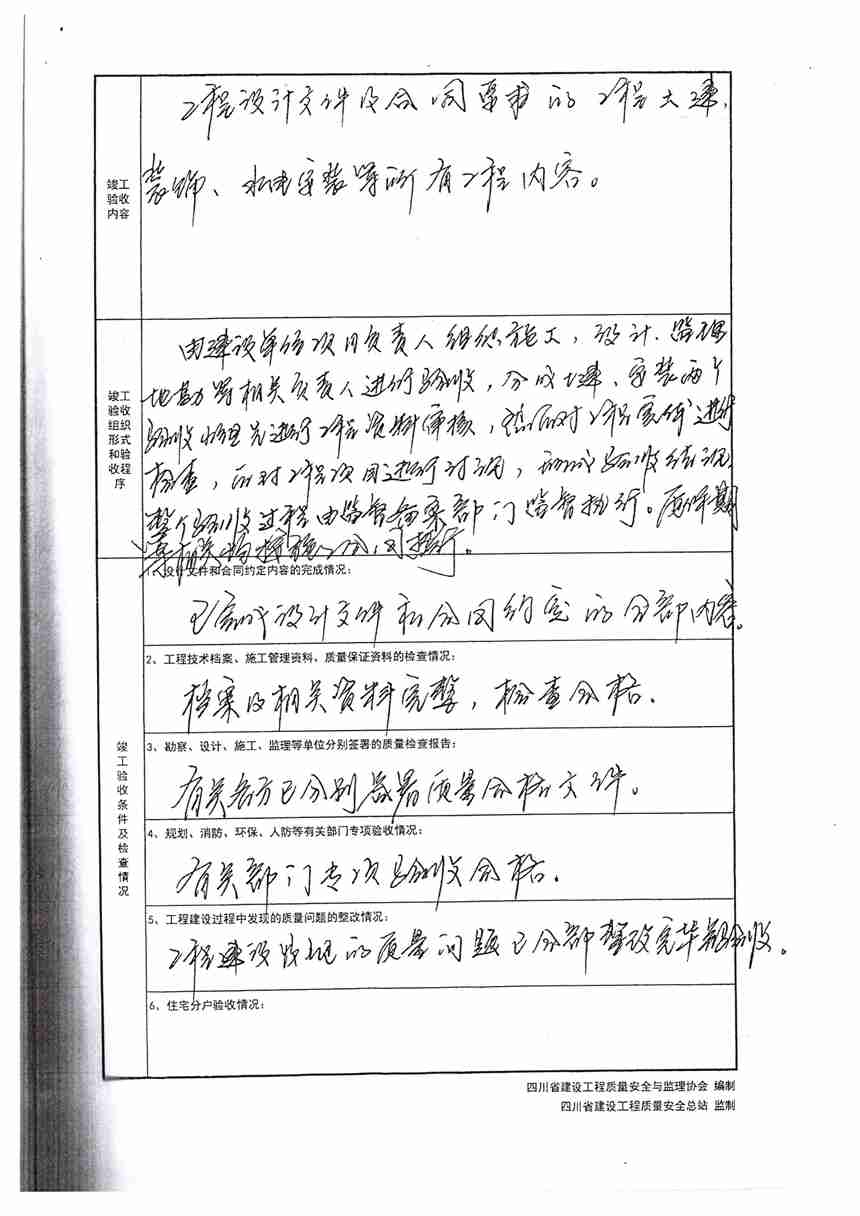 竣工
验收
内容
工程设计文件及合同要求的工程土建、
装饰、水电安装等所有工程内容。
竣工
验收
组织
形式
和验
收程
序
由建设单位项目负责人组织施工,设计、监理
地勘等相关负责人进行验收,分成土建、安装两个
验收小组先进行工程资料审核,然后对工程实体进行
检查,后对工程项目进行讨论,形成验收结论,
整个验收过程由监督备案部门监督执行。
竣工验收条件及检查情况
1、设计文件和合同约定内容的完成情况:
已完成设计文件和合同约定的全部内容。
2、工程技术档案、施工管理资料、质量保证资料的检查情况:
档案及相关资料完整,检查合格.
3、勘察、设计、施工、监理等单位分别签署的质量检查报告:
有关各方已分别签署质量合格文件。
4、规划、消防、环保、人防等有关部门专项验收情况:
有关部门专项验收合格.
5、工程建设过程中发现的质量问题的整改情况:
工程建设的质量问题已全部整改完毕验收。
6、住宅分户验收情况:
四川省建设工程质量安全与监理协会 编制
四川省建设工程质量安全总站 监制